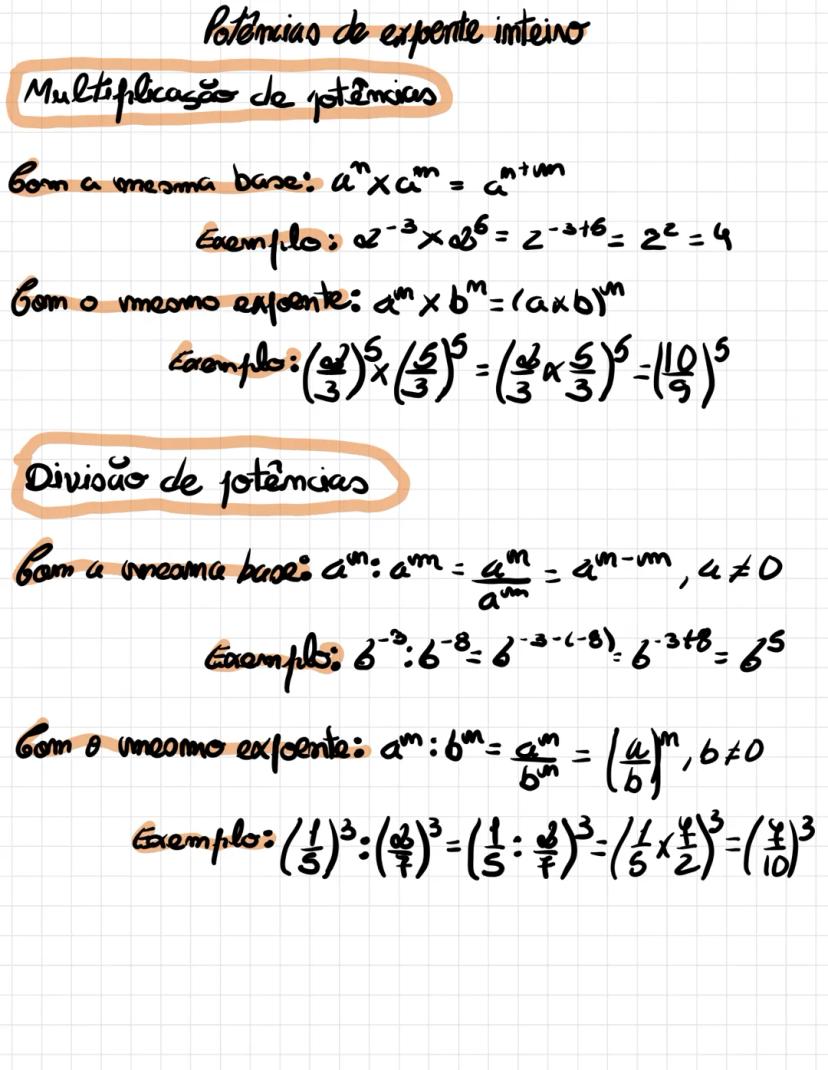 Potências de expente inteiro
Multiplicação de potências
Com a mesma base: aⁿ × aᵐ = aⁿ⁺ᵐ
Exemplo: 2⁻³ × 2⁶ = 2⁻³⁺⁶ = 2² = 4
Com o mesmo expoente: aⁿ × bⁿ = (a×b)ⁿ
Exemplo: (2/3)⁵ × (5/3)⁵ = (2/3 × 5/3)⁵ = (10/9)⁵
Divisão de potências
Com a mesma base: aⁿ : aᵐ = aⁿ/aᵐ = aⁿ⁻ᵐ, a ≠ 0
Exemplo: 6⁻³ : 6⁻⁸ = 6⁻³⁻⁽⁻⁸⁾ = 6⁻³⁺⁸ = 6⁵
Com o mesmo expoente: aⁿ : bⁿ = aⁿ/bⁿ = (a/b)ⁿ, b ≠ 0
Exemplo: (1/5)³ : (2/7)³ = (1/5 : 2/7)³ = (1/5 × 7/2)³ = (7/10)³